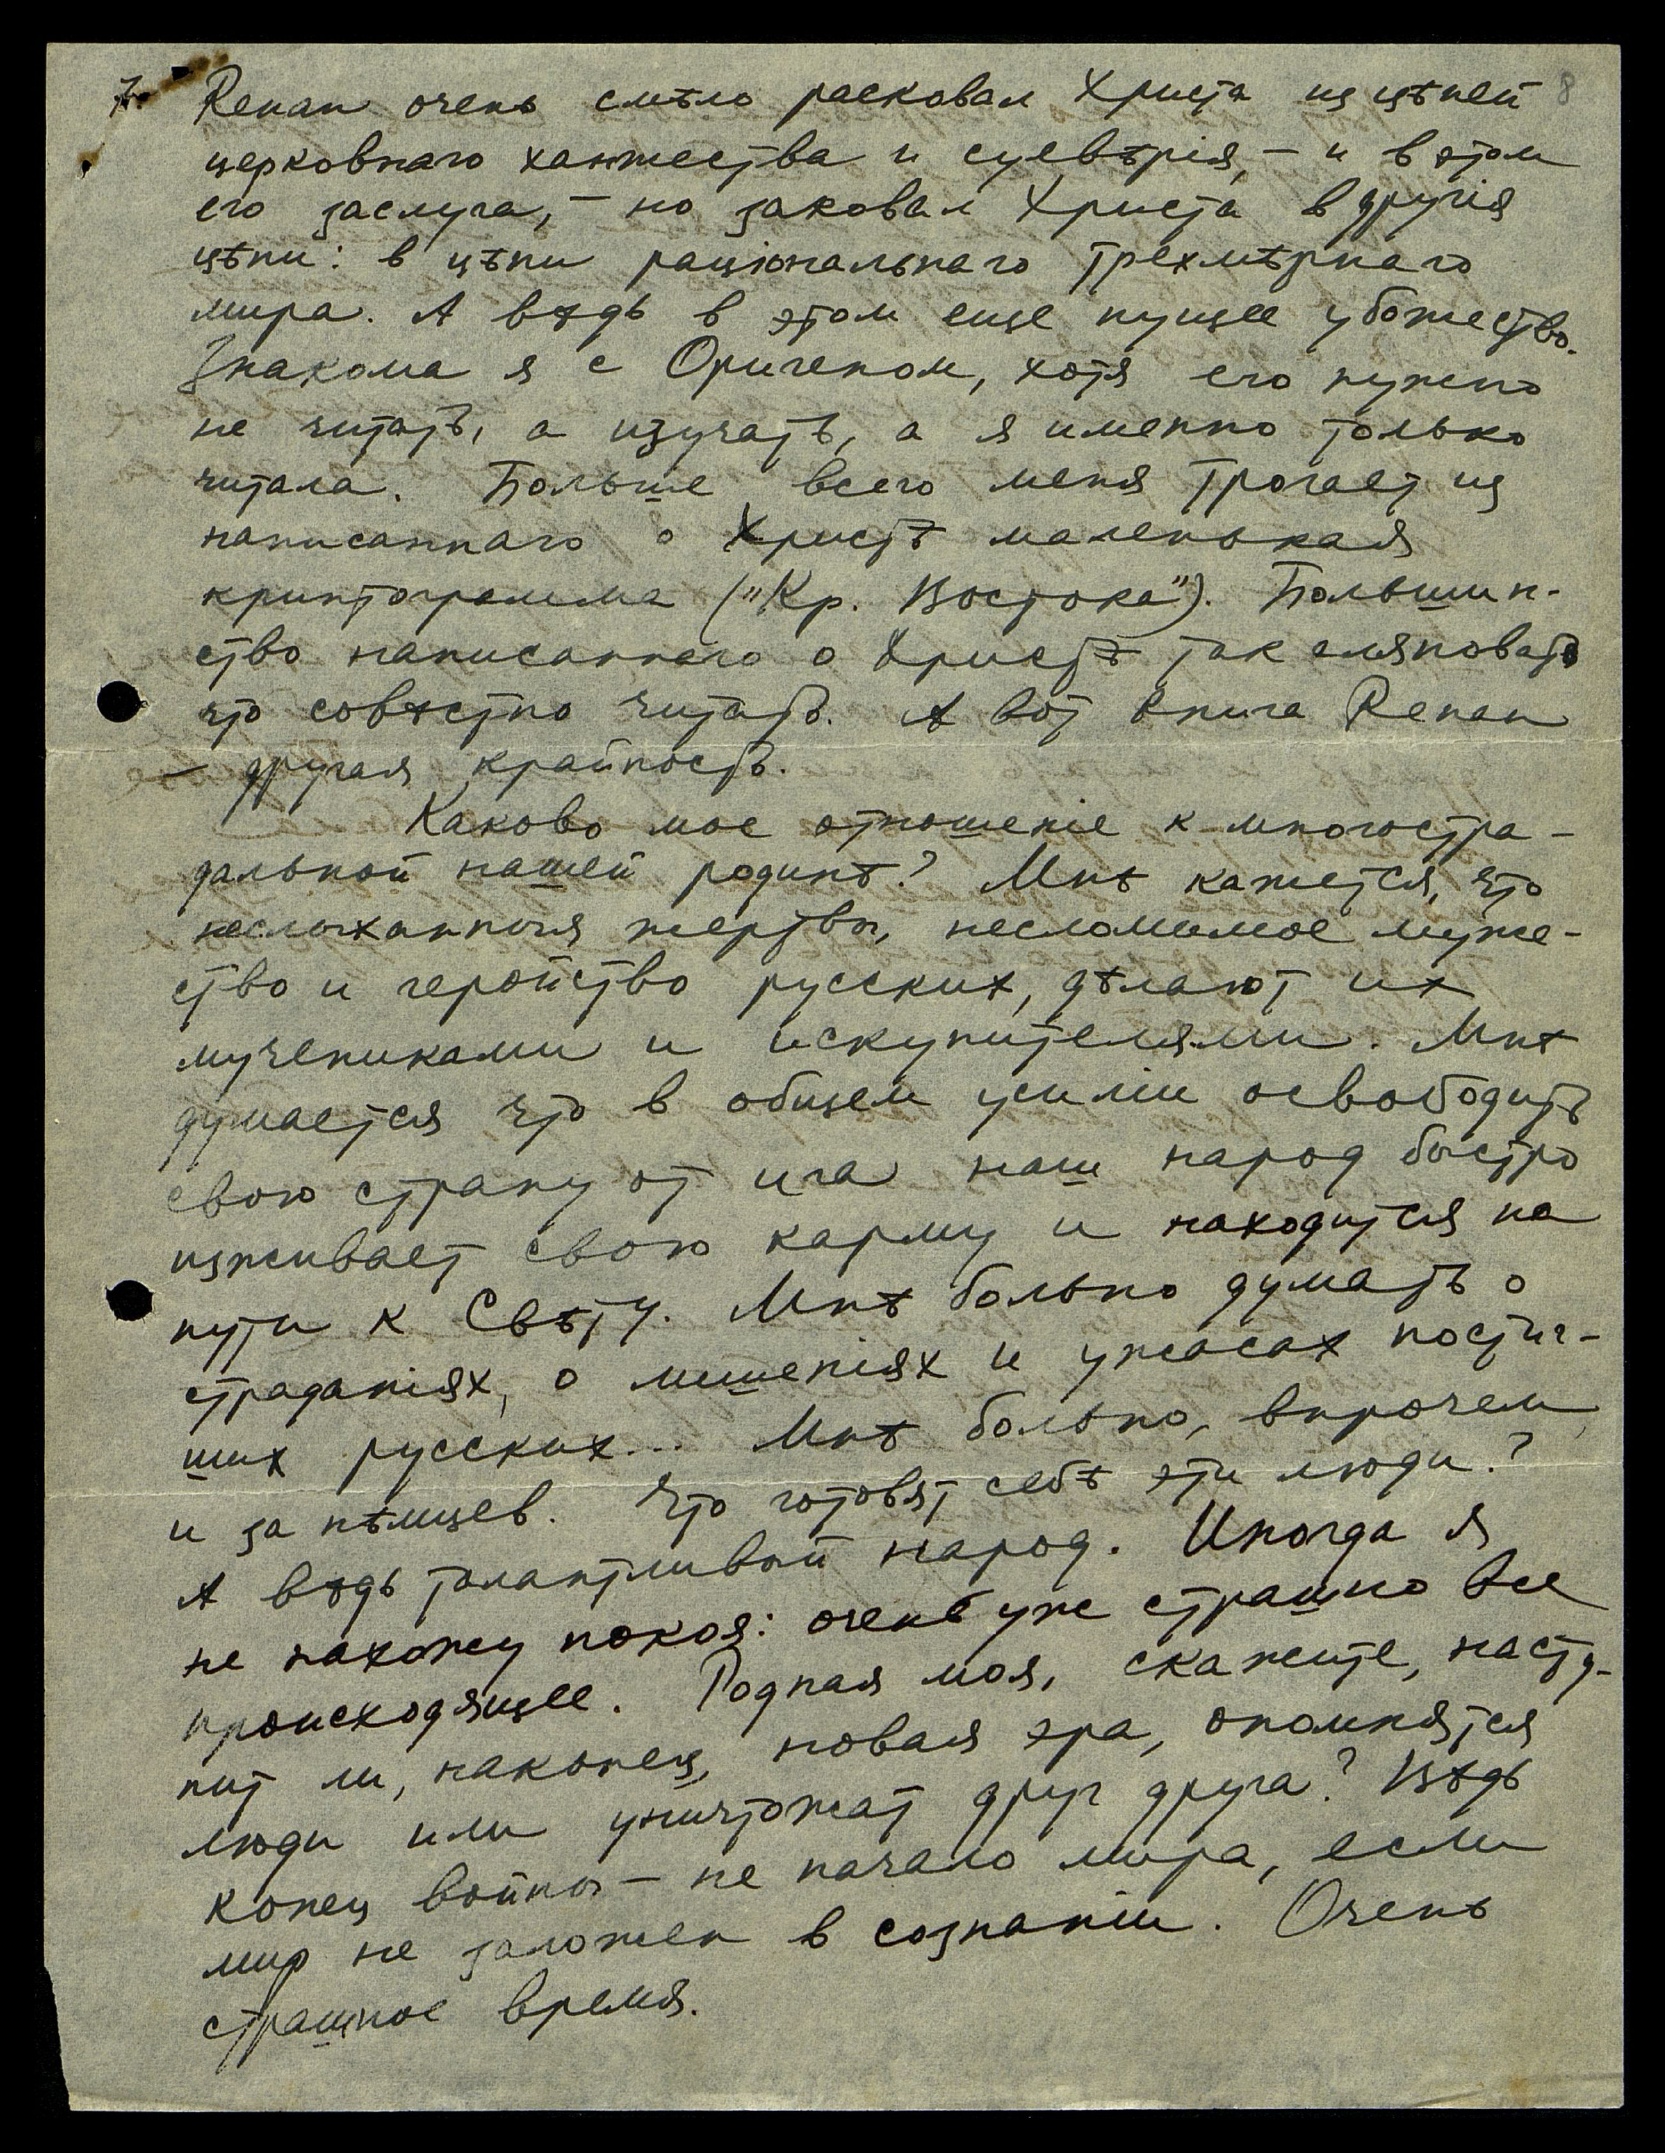 7. Renan очень смѣло расковал Христа из цѣпей 8
церковнаго ханжества и суевѣрія, – и в этом
его заслуга, – но заковал Христа в другія
цѣпи: в цѣпи раціональнаго трехмѣрнаго
мира. А вѣдь в этом еще пущее убожество.
Знакома я с Оригеном, хотя его нужно
не читать, а изучать, а я именно только
читала. Больше всего меня трогает из
написаннаго о Христѣ маленькая
криптограмма ("Кр. Востока"). Большин-
ство написаннаго о Христѣ так аляповато
что совѣстно читать. А вот книга Renan
– другая крайность.
Каково мое отношеніе к многостра-
дальной нашей родинѣ? Мнѣ кажется, что
неслыханныя жертвы, несломимое муже-
ство и геройство русских, дѣлают их
мучениками и искупителями. Мнѣ
думается что в общем усиліи освободить
свою страну от ига наш народ быстро
изживает свою карму и находится на
пути к Свѣту. Мнѣ больно думать о
страданіях, о лишеніях и ужасах постиг-
ших русских... Мнѣ больно, впрочем,
и за нѣмцев. Что готовят себѣ эти люди?
А вѣдь талантливый народ. Иногда я
не нахожу покоя: очень уж страшно все
происходящее. Родная моя, скажите, насту-
пит ли, наконец, новая эра, опомнятся
люди или уничтожат друг друга? Вѣдь
конец войны – не начало мира, если
мир не заложен в сознаніи. Очень
страшное время.